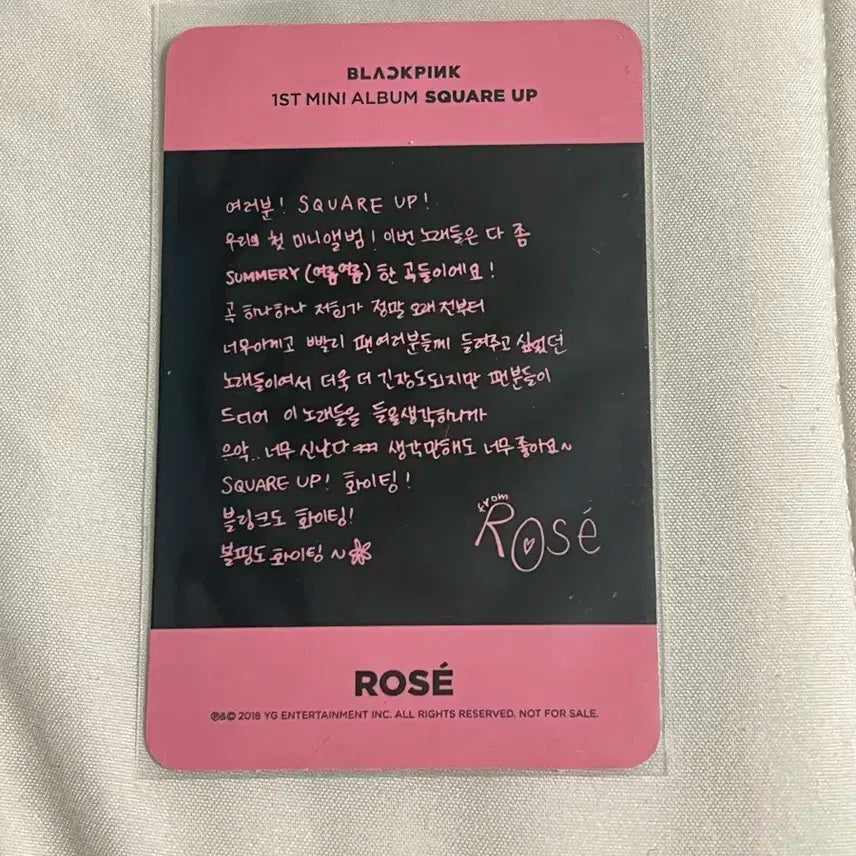 BLACKPINK
1ST MINI ALBUM SQUARE UP
여러분! SQUARE UP!
우리의 첫 미니앨범! 이번 노래들은 다 좀
SUMMERY (여름여름) 한 곡들이에요!
곡 하나하나 저희가 정말 오래 전부터
너무아끼고 빨리 팬여러분들께 들려주고 싶었던
노래들이여서 더욱 더 긴장도되지만 팬분들이
드디어 이 노래들을 들을생각하니까
으악.. 너무 신난다 ㅋㅋㅋ 생각만해도 너무좋아요~
SQUARE UP! 화이팅!
블링크도 화이팅!
블핑도 화이팅~
from
Rosé
ROSÉ
℗&© 2018 YG ENTERTAINMENT INC. ALL RIGHTS RESERVED. NOT FOR SALE.